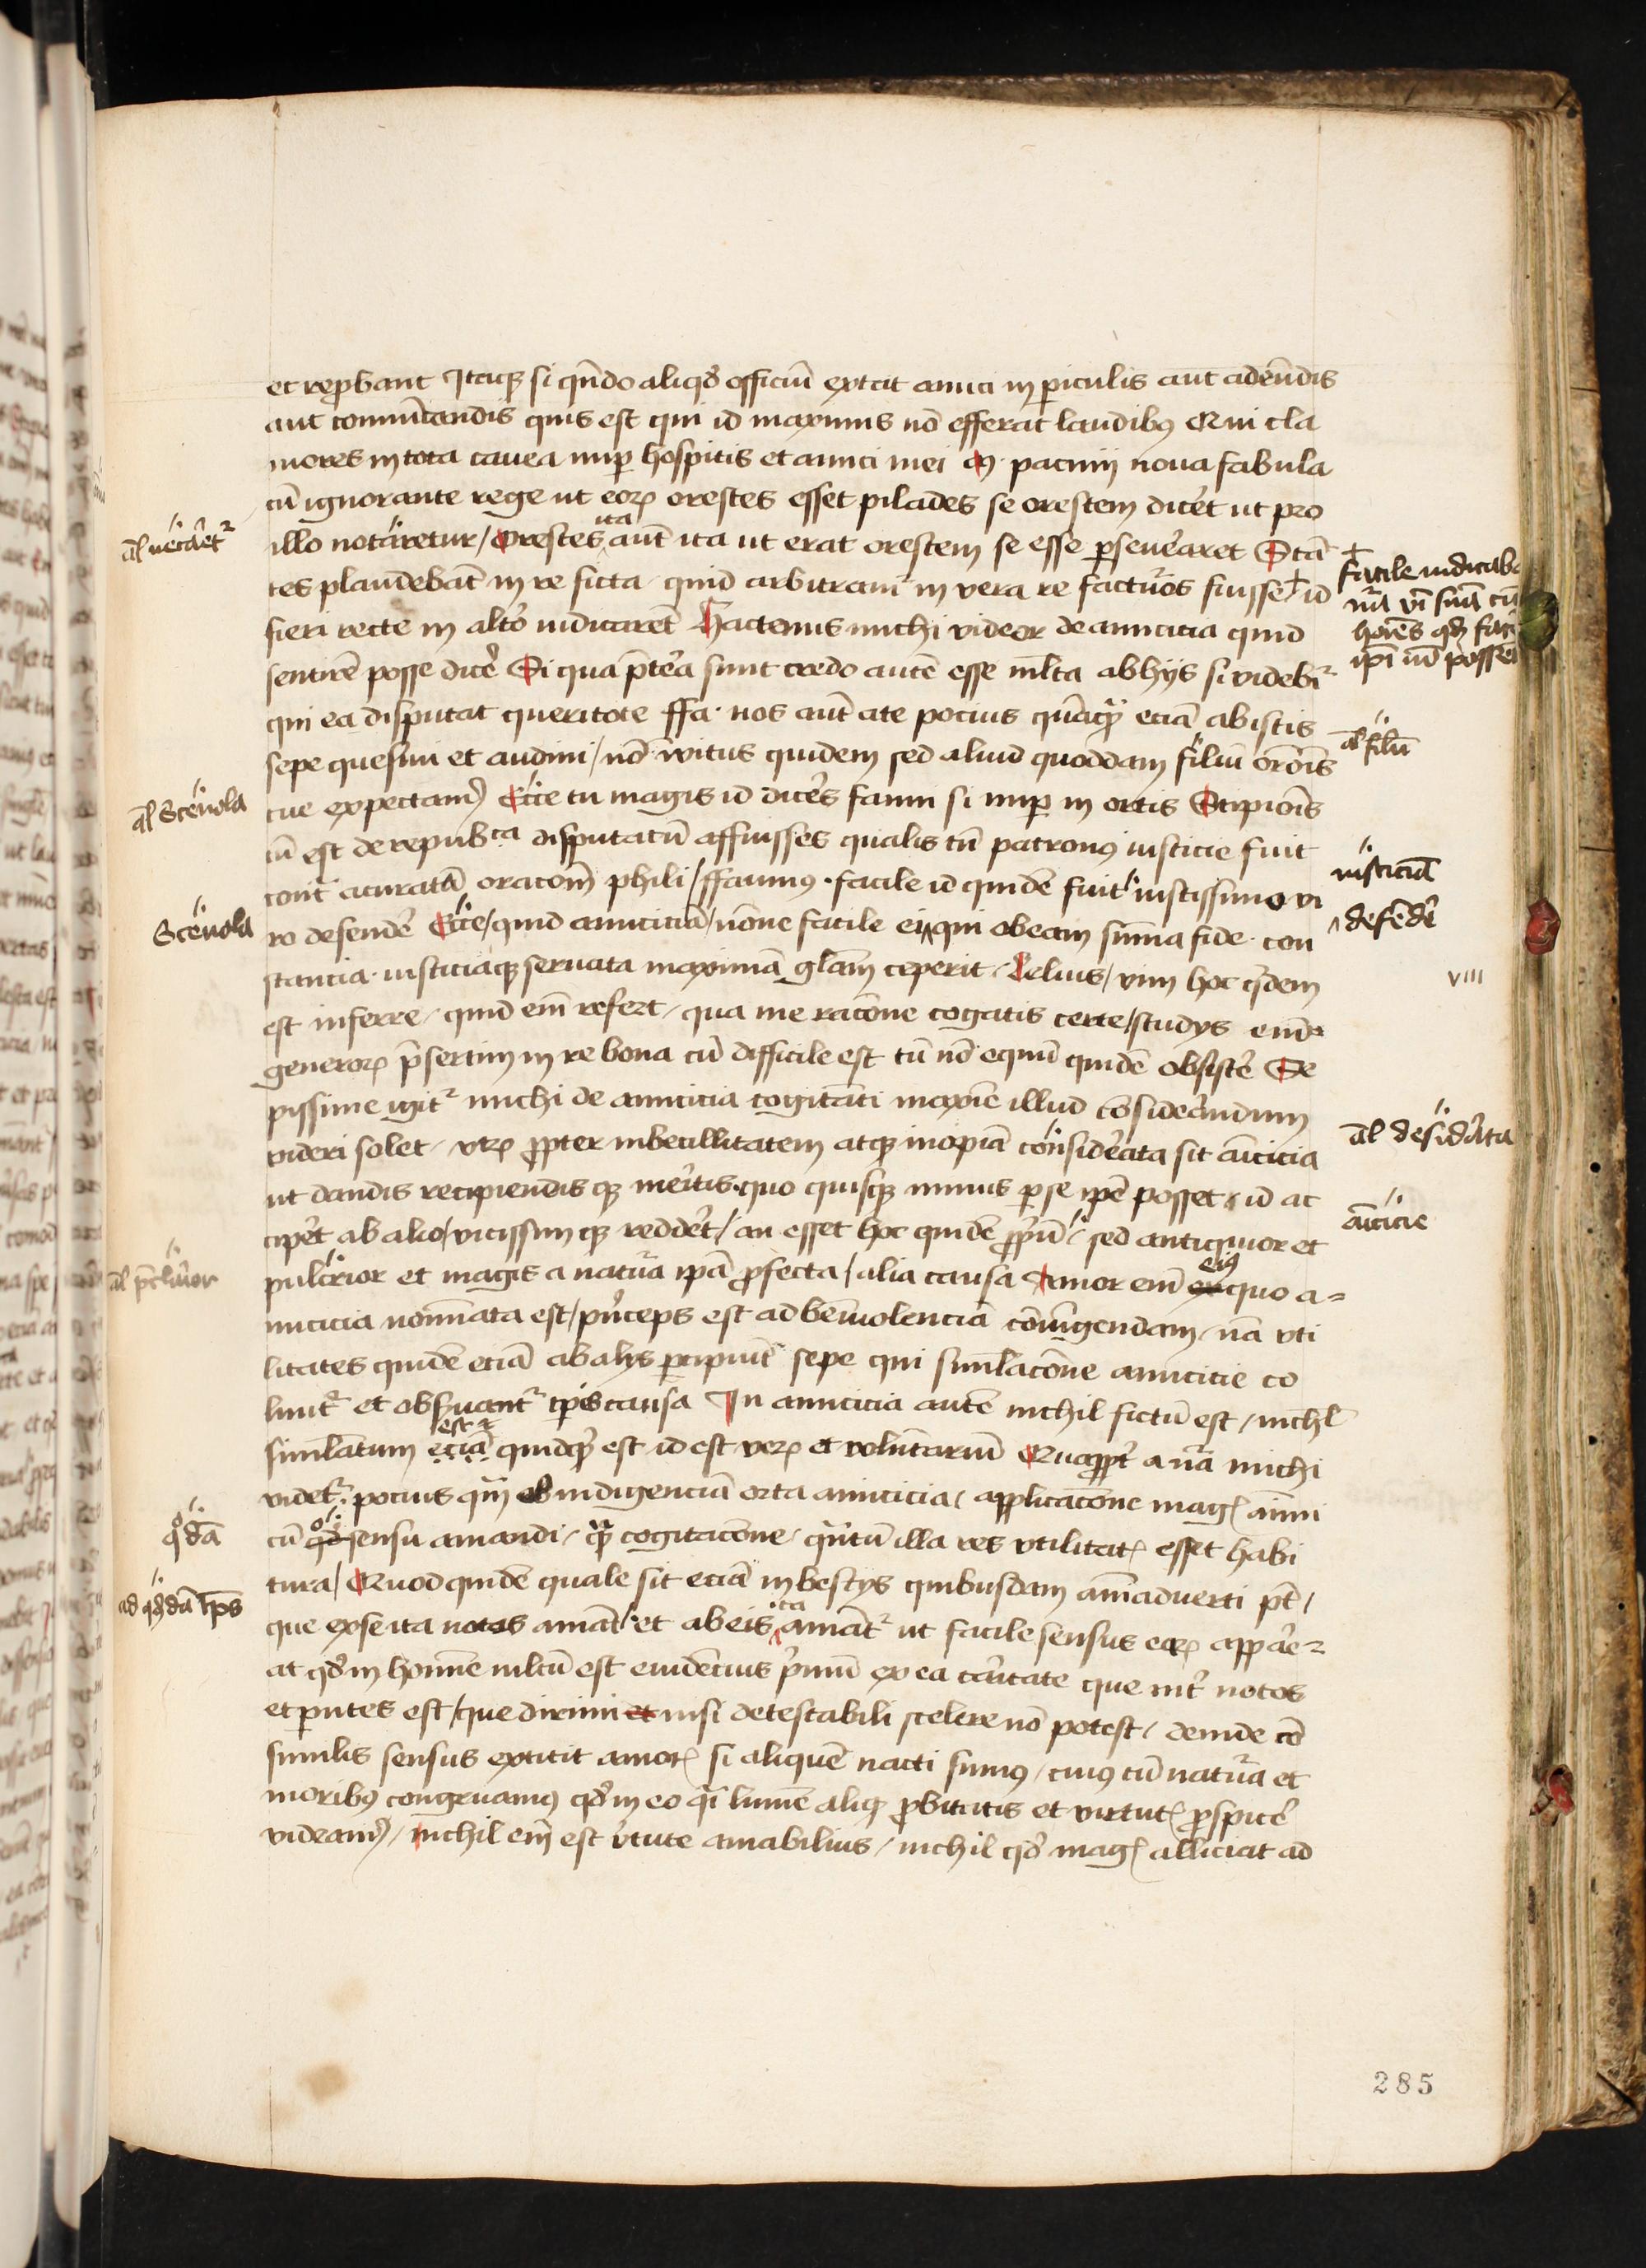 et reprobant Itaqꝫ si qn̄do aliqd̓ officiū extat amici in periculis aut adeūdis
aut com̄unicandis quis est qui id maximis nō efferat laudibꝰ Qui cla
mores in tota cauea nup hospitis et amici mei M. pacuuij noua fabula
cū ignorante rege ut eorꝫ orestes esset pilades se orestem dicēt ut pro
illo notaretur / Orestes ita aūt ita ut erat orestem se esse perseueraret Stā
tes plaudebāt in re ficta quid arbitramᷣ in vera re facturos fuisse + id
fieri recte in altō iudicarēt Hactenus michi videor de amicicia quid
sentirē posse dicē Si qua p̄tea sunt credo autē esse m̄lta abhijs si videbiᷣ
qui ea disputat queritote ffa. nos aūt ate pocius quāqꝫ eciā abistis
sepe quesiui et audiui / nō īuitus quidem sed aliud quoddam filiū or̄onis
tue expectamꝰ Ecce tu magis id diceres fanni si nup in ortis Scipiōis
cū est de repub̄ca disputatū affuisses qualis tū patronꝰ iusticie fuit
cont̄ acuratā oracoem̄ phili / ffannuꝰ . facile id quidē fuit iustissimo vi
ro defendē Ecce / quid amiciciā / nōne facile ei qui obeam sum̄a fide . con
stancia . iusticiaqꝫ seruata maximā gl̄am ceperit . Lelius / vim hoc qͥdem
est inferre . quid em̄ refert . qua me racōne cogatis certe / studys eīm
generorꝫ p̄sertim in re bona cū difficile est tū nō equū quidē obsistē Se
pissime igitᷣ michi de amicicia cogitāti maxīe illud cōsiderandum
videri solet . vtrꝫ ꝓpter inbecillitatem atqꝫ inopiā considerata sit amicicia
ut dandis recipiendis qꝫ meritis . quo quisqꝫ minus per se ipē posset . id ac
cipet ab alio / vicissim qꝫ reddēt / an esset hoc quidē ꝓpriū . sed antiquior et
pulcrior et magis a natura ipā ꝓfecta / alia causa Amor em̄ ex eiꝰ quo a=
micicia nom̄nata est / pͥnceps est ad beniuolenciā cōiungendam . nā vti
litates quidē eciā ab alijs percipiūtᷣ sepe qui simulacōne amicicie co
luntᷣ et obseruantᷣ tp̄is causa In amicicia autē nichil fictū est / nichl̄
simulatum eciā est et quidqd̓ est id est verꝫ et voluntariū Quaꝓpt̄ a nr̄a michi
videtᷣ . pocius qͣm ab indigenciā orta amicicia / applicacōne magꝭ animi
cū qd̓ sensu amandi / qͣm cogitacōne / qͣntū illa res vtilitatꝭ esset habi
tura / Quod quidē quale sit eciā in bestijs quibusdam am̄aduerti pt̄ /
que exse ita natos amāt et abeis ita amātᷣ ut facile sensus eorꝫ appare=
at qd̓ in homīe m̄ltū est euidēcius pͥmū ex ea caritate que int̄ notos
et pentes est / que dirimi et nisi detestabili scelere nō potest / deinde cō
similis sensus extitit amorꝭ si aliquē nacti sumꝰ / cuiꝰ cū natura et
moribꝰ congruamꝰ qd̓ in eo qͣsi lumē aliqꝫ ꝓbitatis et virtutꝭ ꝓspicē
videamꝰ / nichil em̄ est vͥtute amabilius / nichil qd̓ magꝭ alliciat ad
al̄ necāetᷣ
al̄ Sceuola
Sceuola
al̄ p̄cliuior
qͦdā
ad qd̓dā tp̄s
+ facile iudicaba
nr̄a vī suā cū
hoīes qd̓ fac
ipī nō possē
al̄ filū
iusticiā
defēdē
viiii
al̄ desidāta
amicicie
285